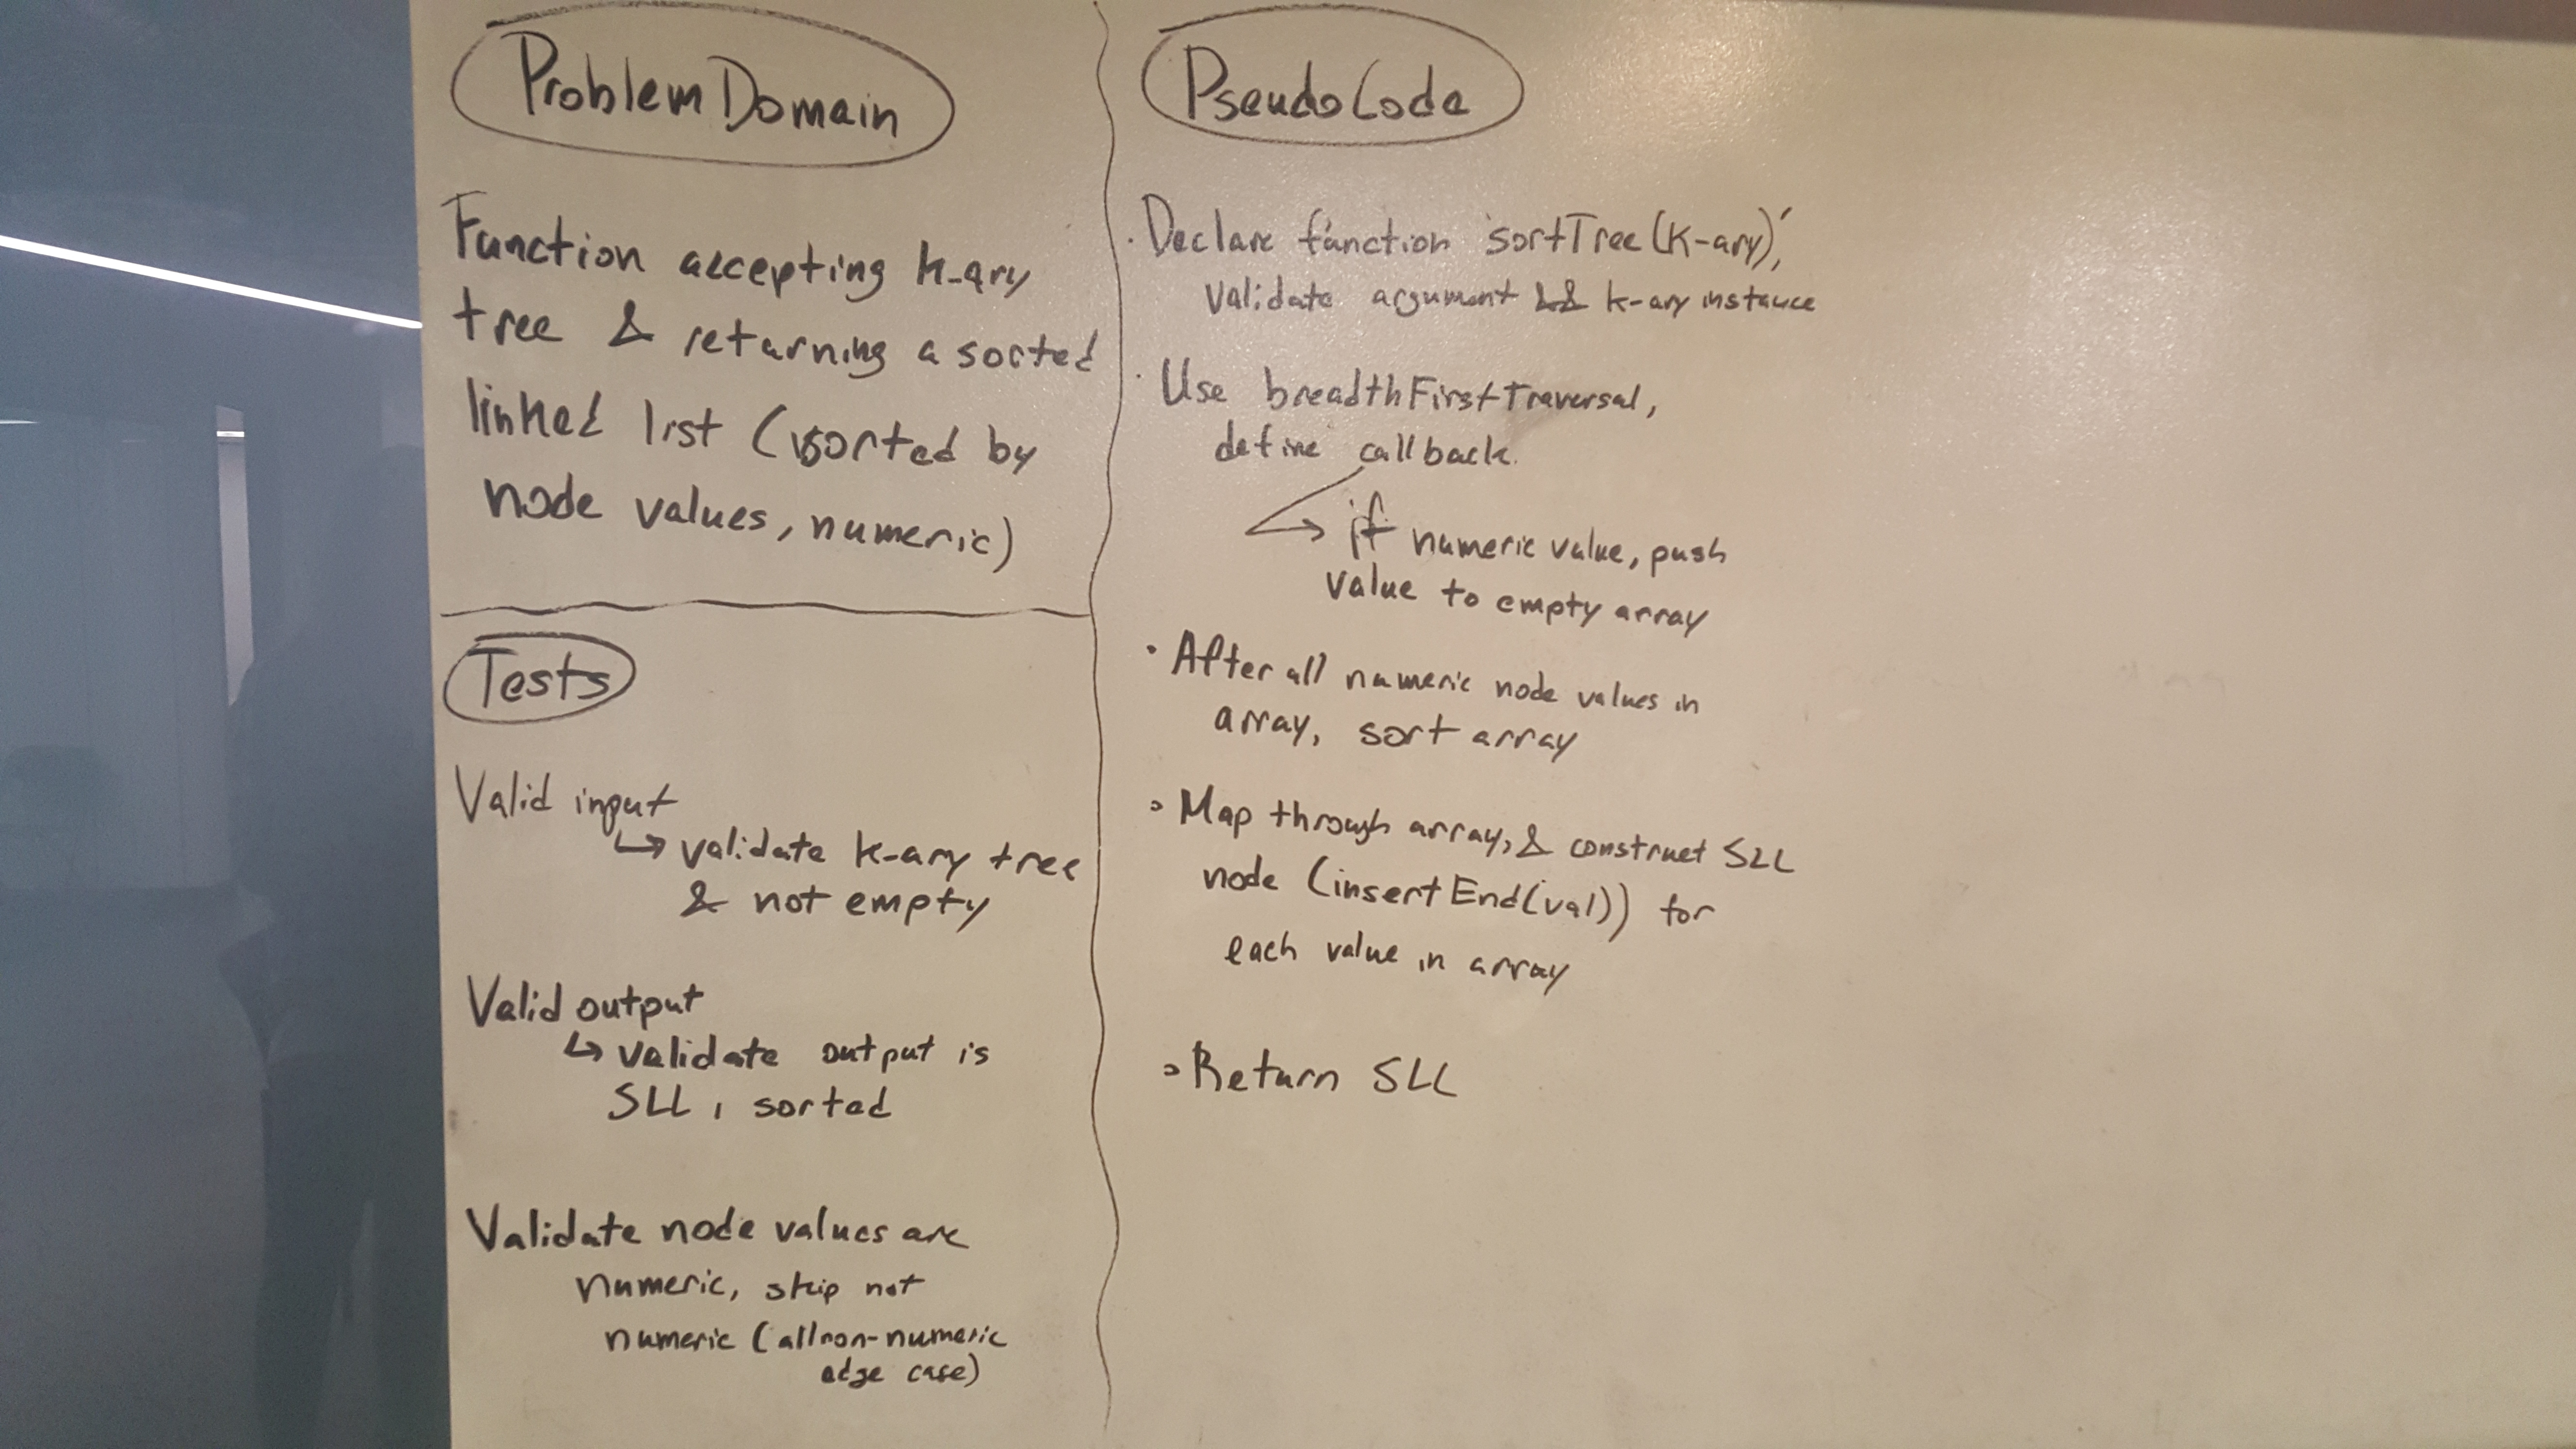 Problem Domain
Function accepting k-ary
tree & returning a sorted
linked list (sorted by
node values, numeric)
Tests
Valid input
↳ validate k-ary tree
& not empty
Valid output
↳ validate output is
SLL, sorted
Validate node values are
numeric, skip not
numeric (all non-numeric
edge case)
PseudoCode
· Declare function 'sortTree(K-ary)',
validate argument && k-ary instance
· Use breadthFirstTraversal,
define callback.
→ if numeric value, push
value to empty array
· After all numeric node values in
array, sort array
· Map through array, & construct SLL
node (insertEnd(val)) for
each value in array
· Return SLL